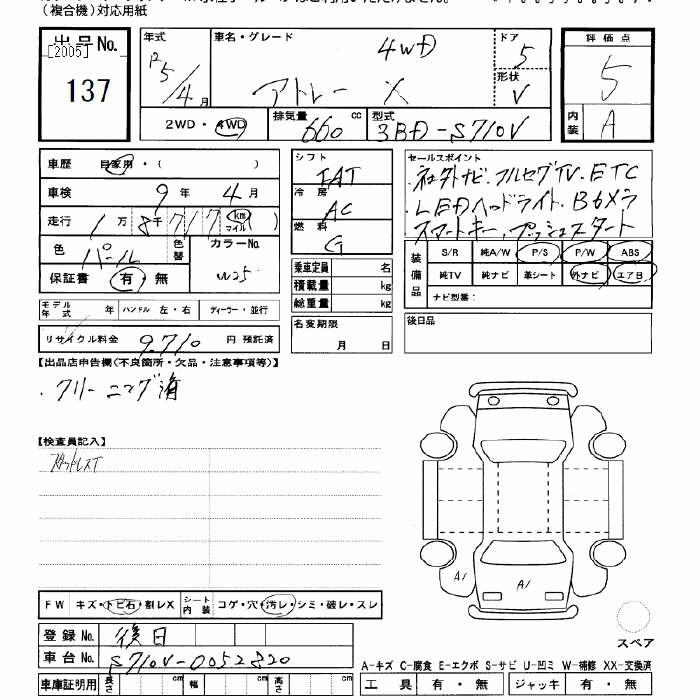 (複合機)対応用紙
出品No.
[2005]
137
年式
R5/4月
車名・グレード
4WD
アトレー X
ドア
5
形状
V
評価点
5
内装
A
2WD・4WD
排気量 660 cc
型式 3BD-S710V
車歴 自家用・( )
車検 9年 4月
走行 1万 8千 717 km マイル
色 パール
色替
カラーNo. W25
保証書 有・無
シフト
IAT
冷房
AC
燃料
G
乗車定員 名
積載量 kg
総重量 kg
セールスポイント
・社外ナビ.フルセグTV.ETC
・LEDヘッドライト.Bカメラ
スマートキー.プッシュスタート
装備品
S/R 純A/W P/S P/W ABS
純TV 純ナビ 革シート 外ナビ エアB
ナビ型番:
モデル年式 年 ハンドル 左・右 ディーラー・並行
リサイクル料金 9,710 円 預託済
名変期限
月 日
後日品
【出品店申告欄(不良箇所・欠品・注意事項等)】
・クリーニング済
【検査員記入】
スタッドレスT
A1
A1
スペア
FW キズ・トビ石・割レX シート内装 コゲ・穴・汚レ・シミ・破レ・スレ
登録No. 後日
車台No. S710V-0052820
A-キズ C-腐食 E-エクボ S-サビ U-凹ミ W-補修 XX-交換済
車庫証明用 長さ cm 幅 cm 高さ cm
工具 有・無 ジャッキ 有・無